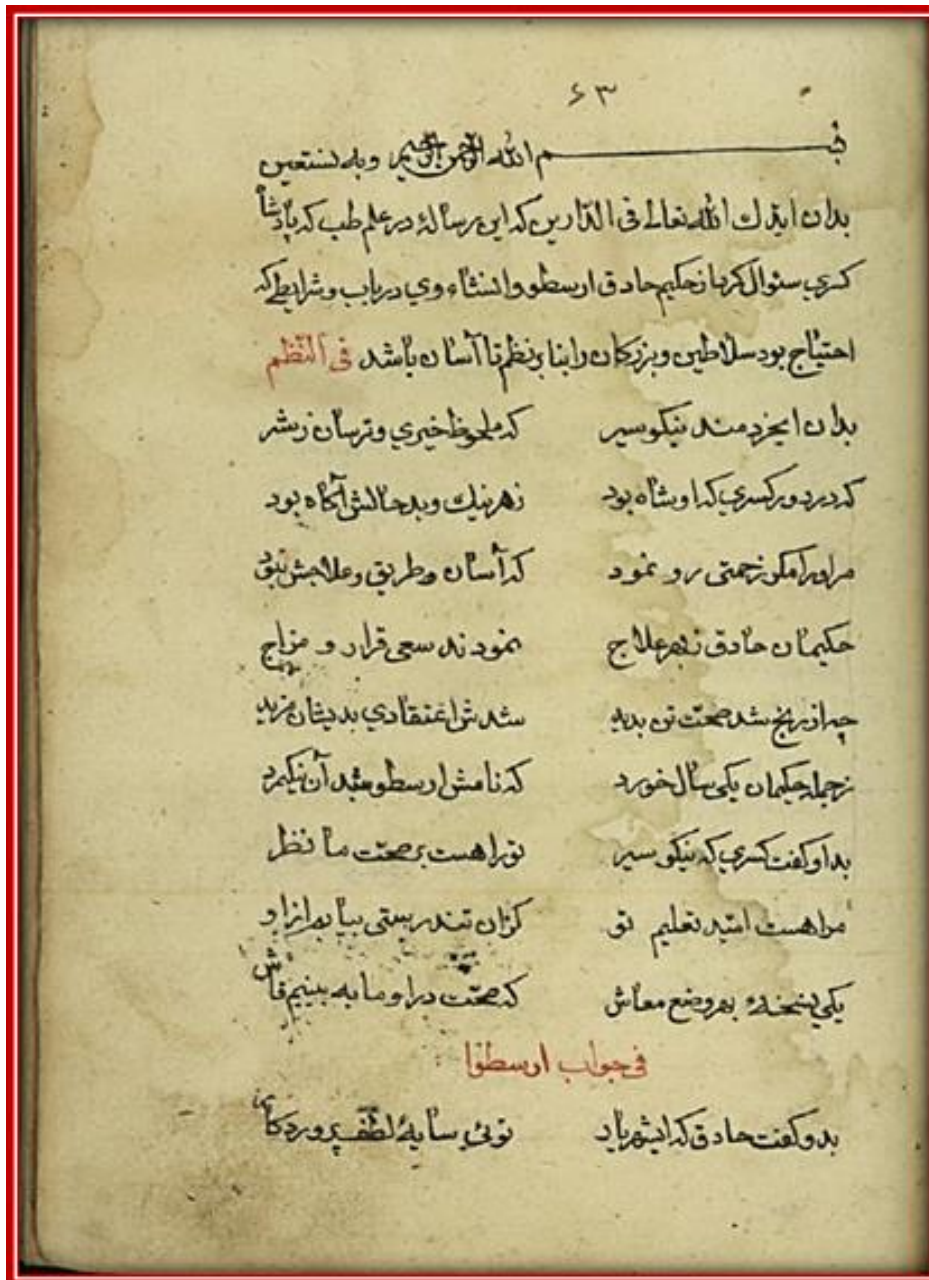 ۶۳
بسم الله الرحمن الرحیم وبه نستعین
بدان ایدك الله تعالی فی الدارین که این رسالهٔ در علم طب که پادشاه
کسری سئوال کرد از حکیم حادق ارسطو وانشاء وي در باب وشرایطی که
احتیاج بود سلاطین و بزرکان را بنا بر نظم تا آسان باشد فی النظم
بدان ایخردمند نیکو سیر که ملحوظ خیري و ترسان زشر
که در دور کسري که او شاه بود زهر نیك وبد حالش آکاه بود
مر او را مکر زحمتی رو نمود که آسان طریق وعلاجش نبود
حکیمان حادق زبهر علاج نمودند سعی قرار و مزاج
چه از رنج شد صحت تن بدید شدش اعتقادي بدیشان مزید
زجمله حکیمان یکی سال خورد که نامش ارسطو شد آن نیکمرد
بداو کفت کسري که نیکو سیر تو را هست بر صحت ما نظر
مرا هست امید تعلیم تو کزان تندرستی بیابم از او
یکی نسخهٔ بهر وضع معاش که صحت در او ما به بینیم فاش
فی جواب ارسطوا
بدو کفت حادق که ایشهریار توئی سایهٔ لطف پروردکار